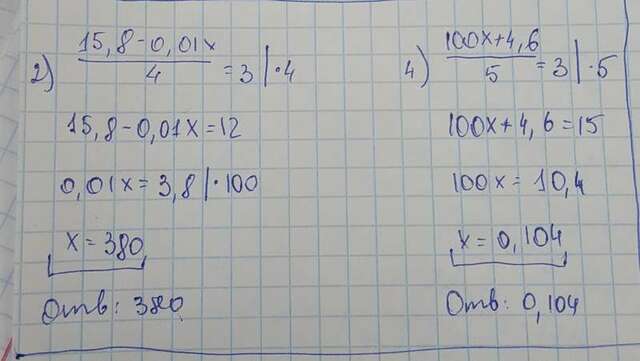 2) (15,8-0,01x)/4 = 3 | ·4
15,8-0,01x=12
0,01x= 3,8 | ·100
x= 380
Отв: 380
4) (100x+4,6)/5 = 3 | ·5
100x+4,6=15
100x= 10,4
x= 0,104
Отв: 0,104